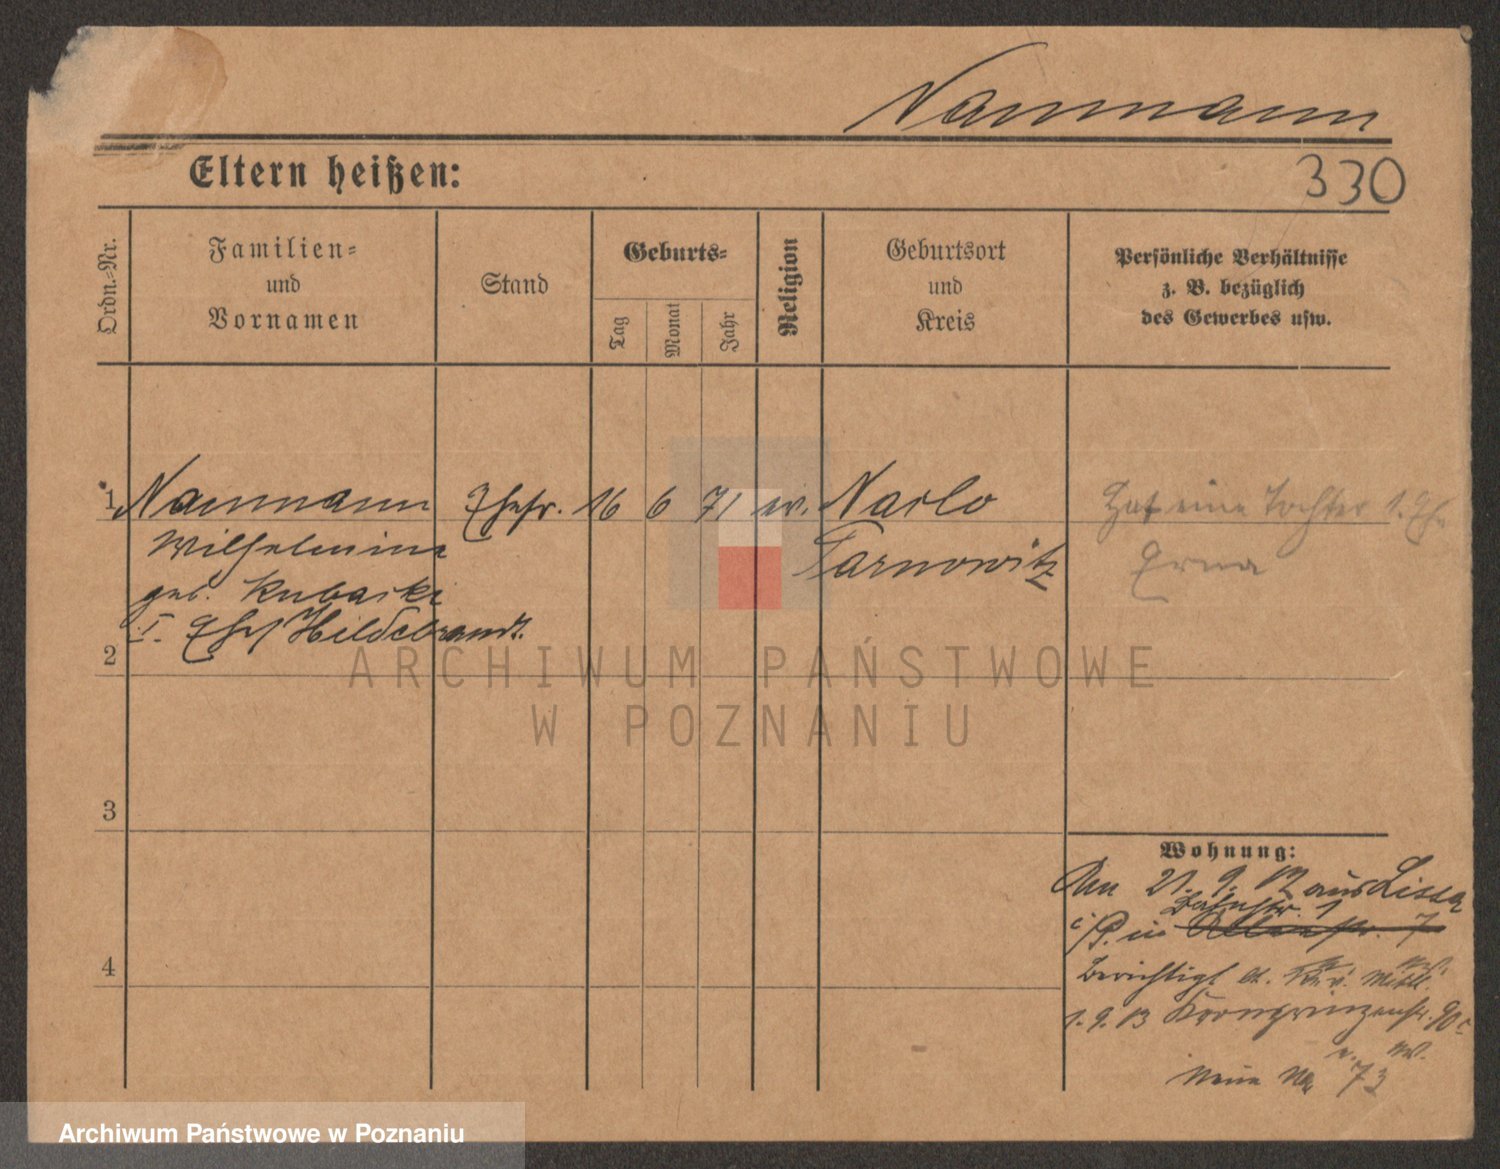 Naumann
330
Eltern heißen:
Ordn.-Nr.
Familien-
und
Vornamen
Stand
Geburts-
Tag
Monat
Jahr
Religion
Geburtsort
und
Kreis
Persönliche Verhältnisse
z. B. bezüglich
des Gewerbes usw.
1 Naumann Ehefr. 16 6 71 ev. Naklo
Wilhelmine Tarnowitz
geb. Kubaske
I. Ehe Hildebrandt.
Hat eine Tochter 1. Ehe
Erna
2
3
4
Wohnung:
Am 21. 9. 12 aus Lissa
Bahnstr. 1
i/P. in 7
Berichtigt lt.
1. 9. 13 Kronprinzenstr. 90
Neue No 73
ARCHIWUM PAŃSTWOWE
W POZNANIU
Archiwum Państwowe w Poznaniu